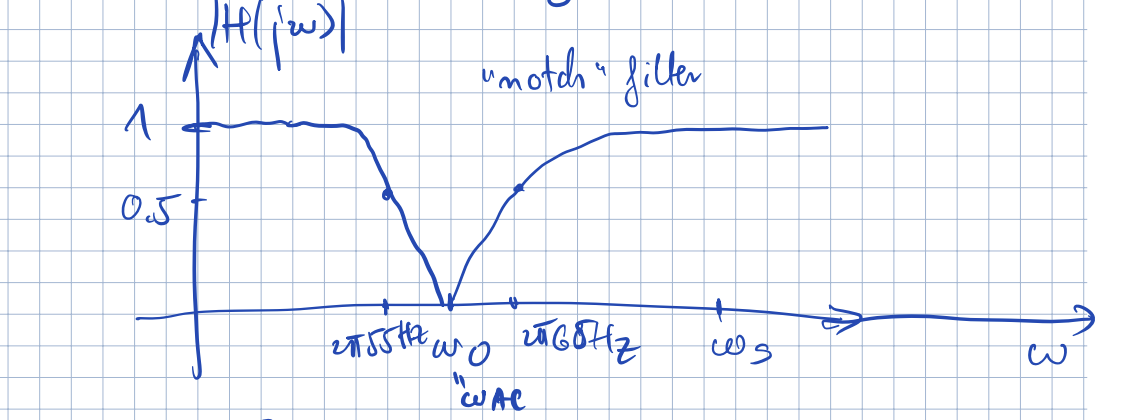 |H(jω)|
"notch" filter
1
0.5
2π55Hz ω0 2π65Hz ωs ω
"ωAC